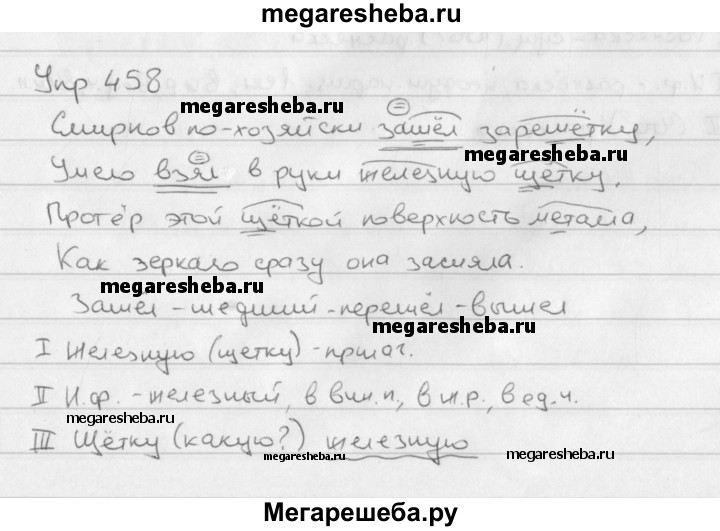 megaresheba.ru
Упр 458
megaresheba.ru
Смирнов по-хозяйски зашёл за решётку,
megaresheba.ru
Умело взял в руки железную щётку.
Протёр этой щёткой поверхность метала,
Как зеркало сразу она засияла.
megaresheba.ru
Зашёл - шедший - перешёл - вышел
megaresheba.ru
I Железную (щетку) - прилаг.
II Н.ф. - железный, в вин.п., в ж.р., в ед.ч.
megaresheba.ru
III Щётку (какую?) железную
megaresheba.ru
megaresheba.ru
Мегарешеба.ру